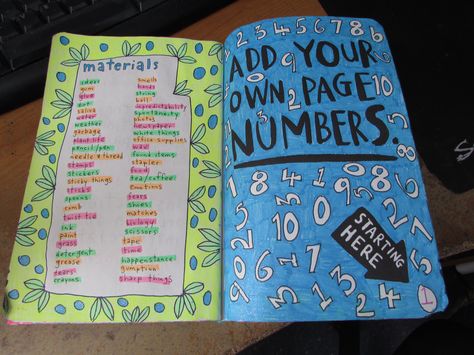 materials
ideas
gum
glue
dirt
saliva
water
weather
garbage
plant life
pencil/pen
needle & thread
stamps
stickers
sticky things
sticks
spoons
comb
twist tie
ink
paint
grass
detergent
grease
tears
crayons
smells
hands
string
ball
unpredictability
spontaneity
photos
newspaper
white things
office supplies
wax
found items
stapler
food
tea/coffee
emotions
fears
shoes
matches
biology
scissors
tape
time
happenstance
gumption
sharp things
ADD YOUR
OWN PAGE
NUMBERS.
10
STARTING
HERE
1